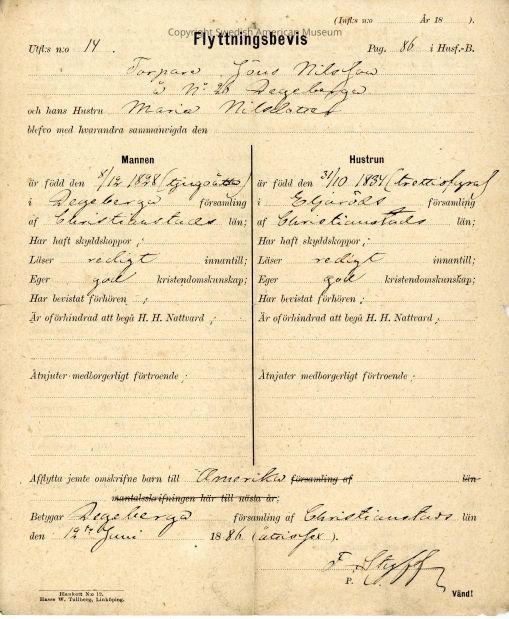 (Infl:s n:o År 18 ).
Copyright Swedish American Museum
Flyttningsbevis
Utfl:s n:o 14. Pag. 86 i Husf.-B.
Torpare Jöns Nilsson
å No 26 Degeberga
och hans Hustru Maria Nilsdotter
blefvo med hvarandra sammanvigda den
Mannen
är född den 8/12 1828 (tjuguåtta)
i Degeberga församling
af Christianstads län;
Har haft skyddskoppor;
Läser redigt innantill;
Eger god kristendomskunskap;
Har bevistat förhören;
Är oförhindrad att begå H. H. Nattvard;
Åtnjuter medborgerligt förtroende;
Hustrun
är född den 31/10 1834 (trettiofyra)
i Eljaröds församling
af Christianstads län;
Har haft skyddskoppor;
Läser redigt innantill;
Eger god kristendomskunskap;
Har bevistat förhören;
Är oförhindrad att begå H. H. Nattvard;
Åtnjuter medborgerligt förtroende;
Afflytta jemte omskrifne barn till Amerika församling af län
mantalsskrifningen här till nästa år;
Betygar Degeberga församling af Christianstads län
den 12te Juni 1886 (åttiosex).
F.
P.
Vänd!
Blankett N:o 12.
Hasse W. Tullberg, Linköping.